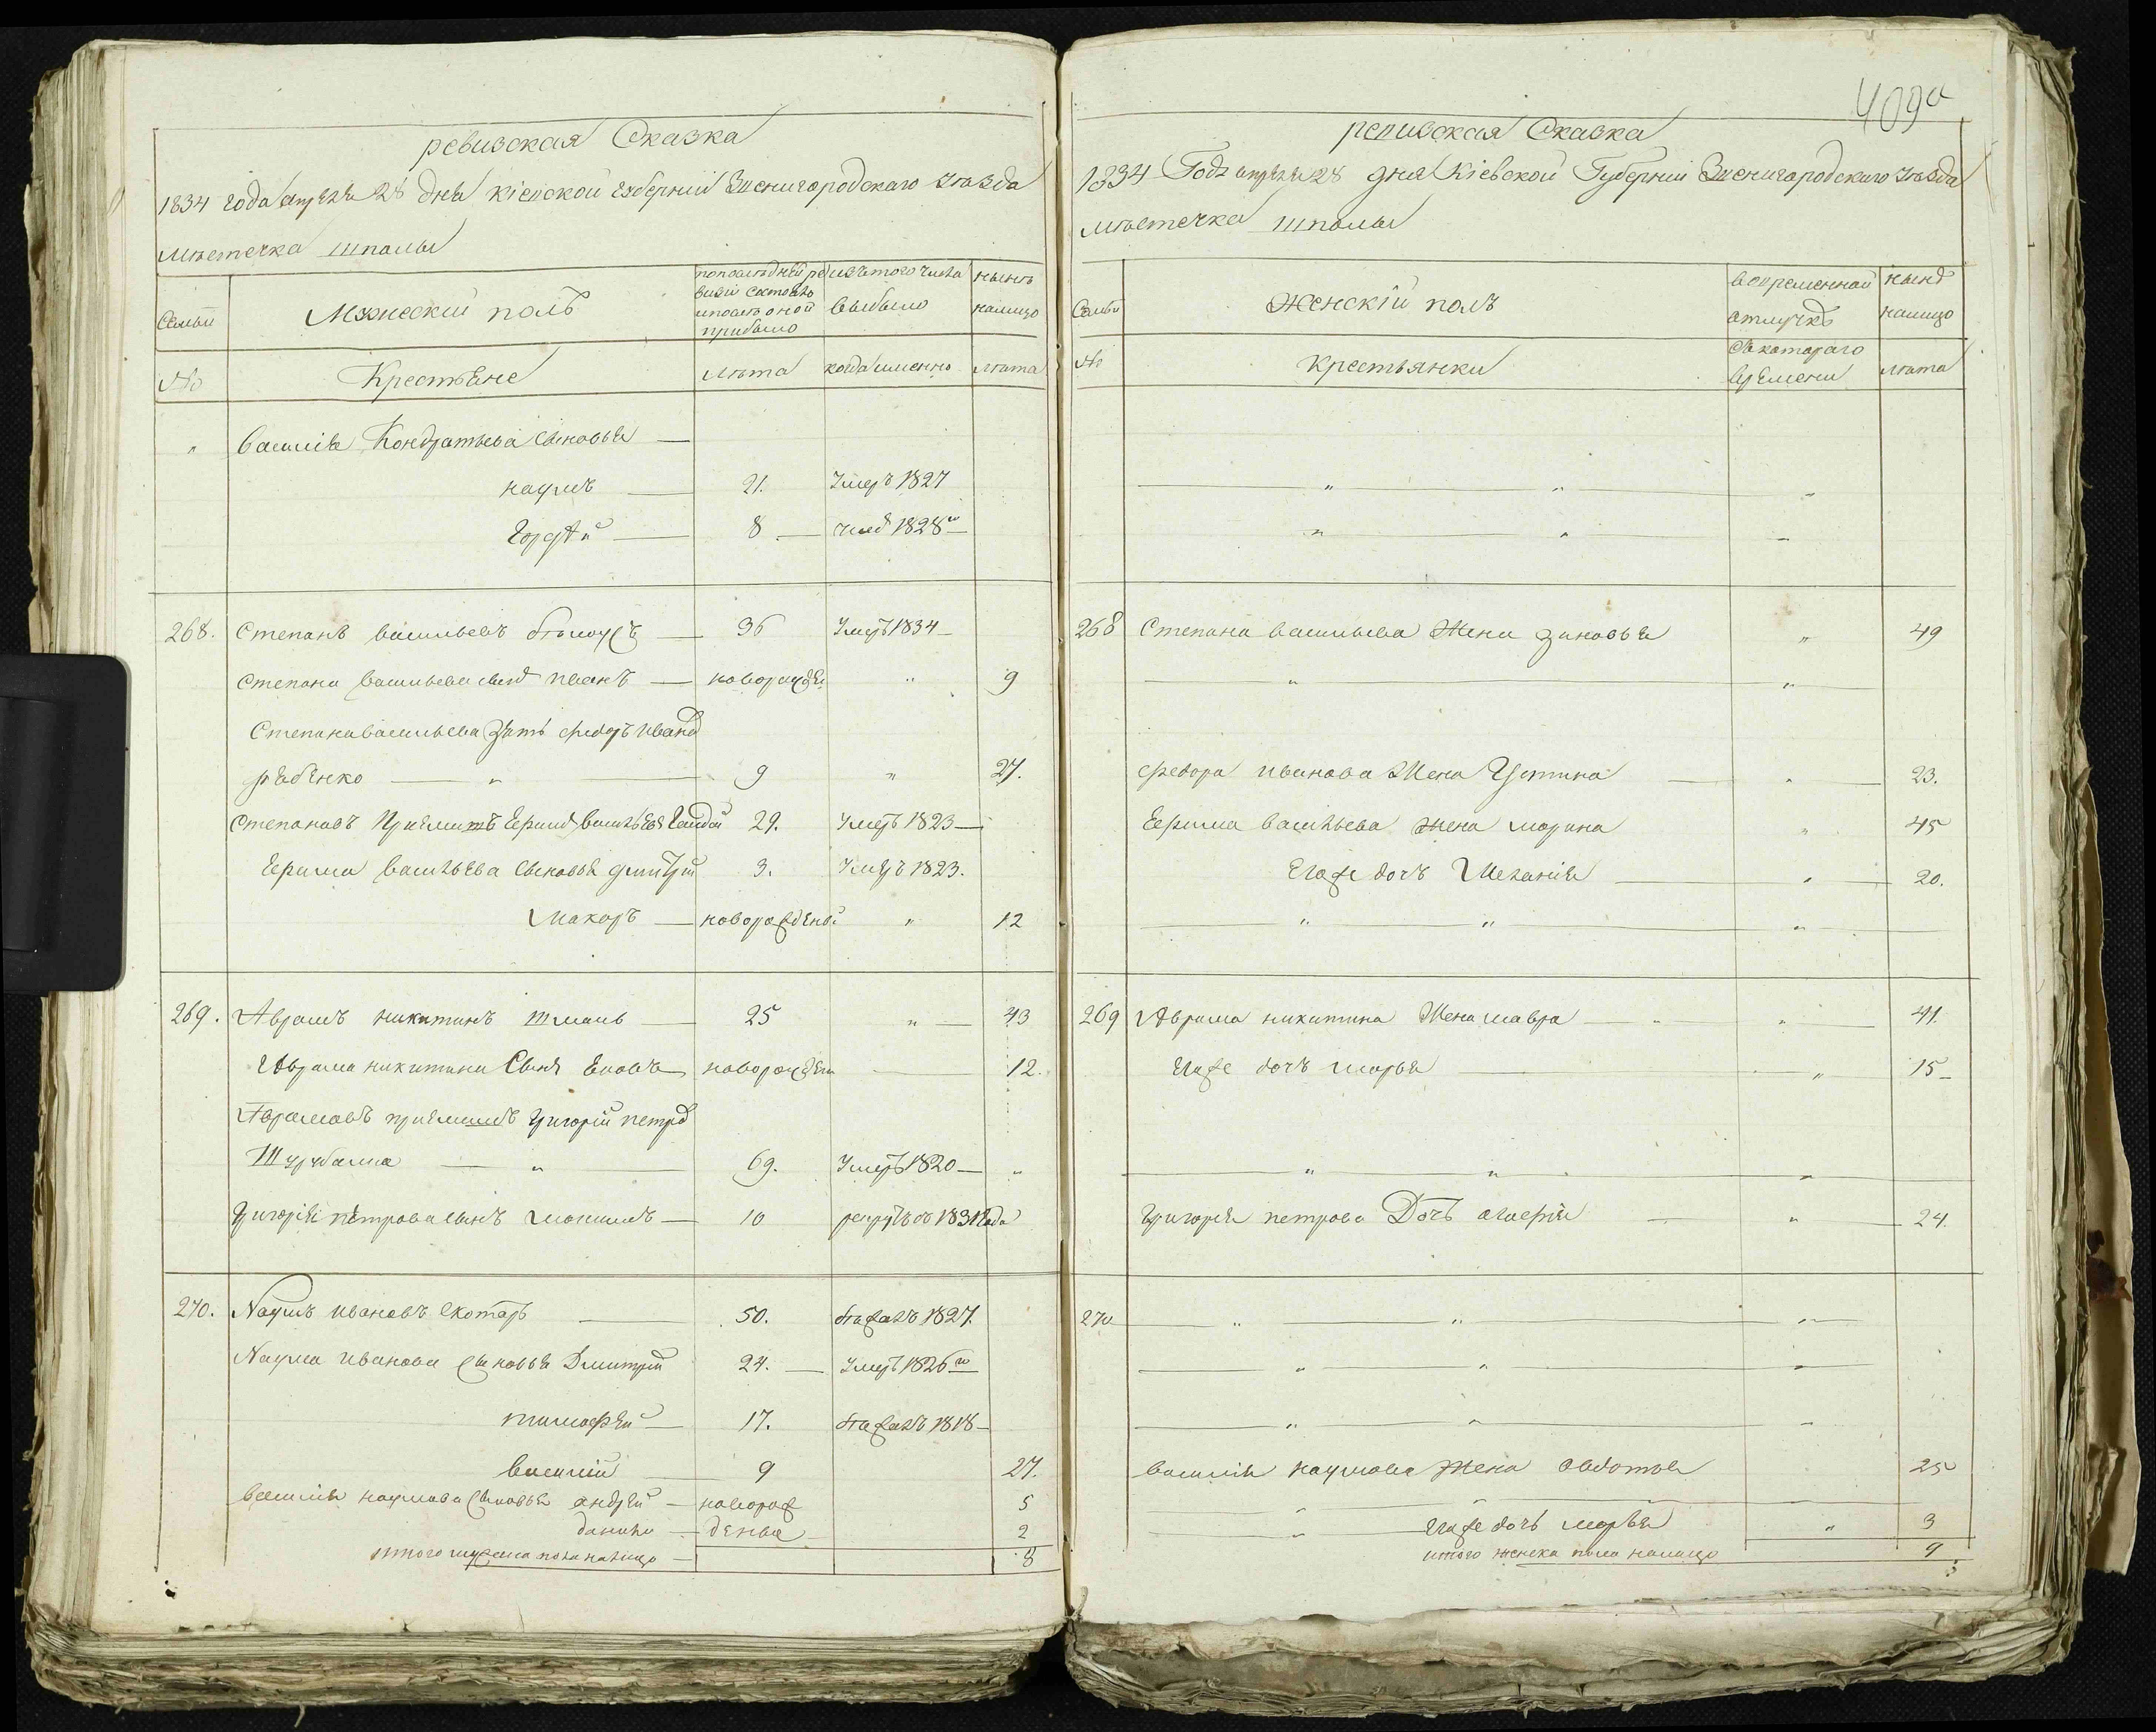 ревизская Сказка
1834 года апреля 28 дня кіевской губерніи Звенигородскаго уѣзда
мѣстечка шполы
Семьи
Мужескій полъ
попослѣдней ревизіи состояло ипослѣ оной прибыло
изътого числа выбыло
нынѣ налицо
№
Крестьяне
лѣта
когда именно
лѣта
" василія Кондратьева сыновья —
наумъ — 21. Умеръ 1827
Гордѣй — 8 — 1828го
268. Степанъ васильевъ бѣлоусъ — 36 Умеръ 1834
Степана васильева сынъ иванъ — новорожде " 9
Степана васильева зять федоръ иванов
рябенко — " — 9 " 27.
Степановъ Приемишъ Ефимъ васильев Гайдай 29. Умеръ 1823 —
Ефима васильева сыновья дмитрій 3. Умеръ 1823.
Макаръ — новорожденый " 12
269. Аврамъ никитинъ шмаль — 25 " — 43
Аврама никитина Сынъ Яковъ новорожден — 12.
Аврамовъ приемишъ григорій петров
Шурубалка — " — 69. Умеръ 1820 — "
григорія петрова сынъ максимъ — 10 рекрутъ въ 1831 года
270. Наумъ ивановъ скотаръ — 50. бѣжалъ 1827.
Наума иванова сыновья Дмитрій 24. — Умеръ 1826го
тимофей — 17. бѣжалъ 1818 —
василій — 9 27.
василія наумова сыновья андрей — новорож 5
данило — деные 2
итого мужеска пола налицо — 8
409а
ревизская Сказка
1834 Года апреля 28 дня Кіевской Губерніи Звенигородскаго уѣзда
мѣстечка шполы
Семьи
Женскій полъ
вовременной отлучкѣ
нынѣ налицо
№
Крестьянки
Съ котораго времени
лѣта
— " — " — "
— " — " — "
268 Степана васильева Жена зиновья " 49
— " — "
Федора иванова Жена Устина — " — 23.
Ефима васильева жена марина " 45
Егоже дочъ Меланія — " — 20.
— " — " — "
269 Аврама никитина Жена мавра — " — " — 41.
Егоже дочъ марья — " — 15 —
— " — " — "
григорія петрова Дочъ агафія — " — 24.
270 — " — " — "
— " — " — "
— " — " — "
василія наумова жена авдотья 25
— " — " —
— " — Егоже дочъ марья " 3
итого женска пола налицо 9